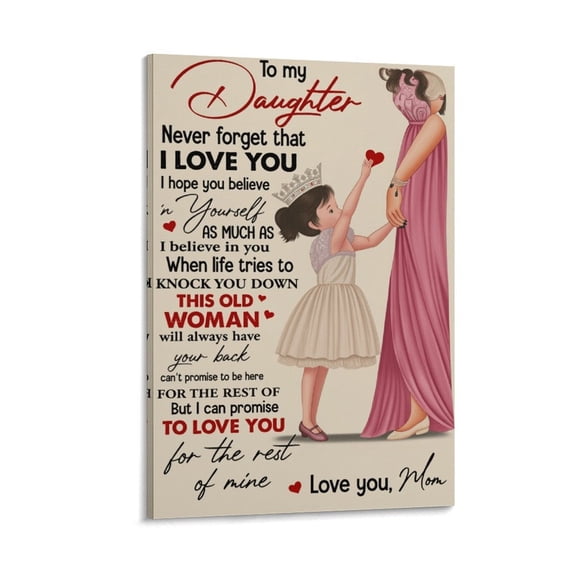 To my
Daughter
Never forget that
I LOVE YOU
I hope you believe
'n Yourself
AS MUCH AS
I believe in you
When life tries to
KNOCK YOU DOWN
THIS OLD
WOMAN
will always have
your back
can't promise to be here
FOR THE REST OF
But I can promise
TO LOVE YOU
for the rest
of mine
Love you, Mom